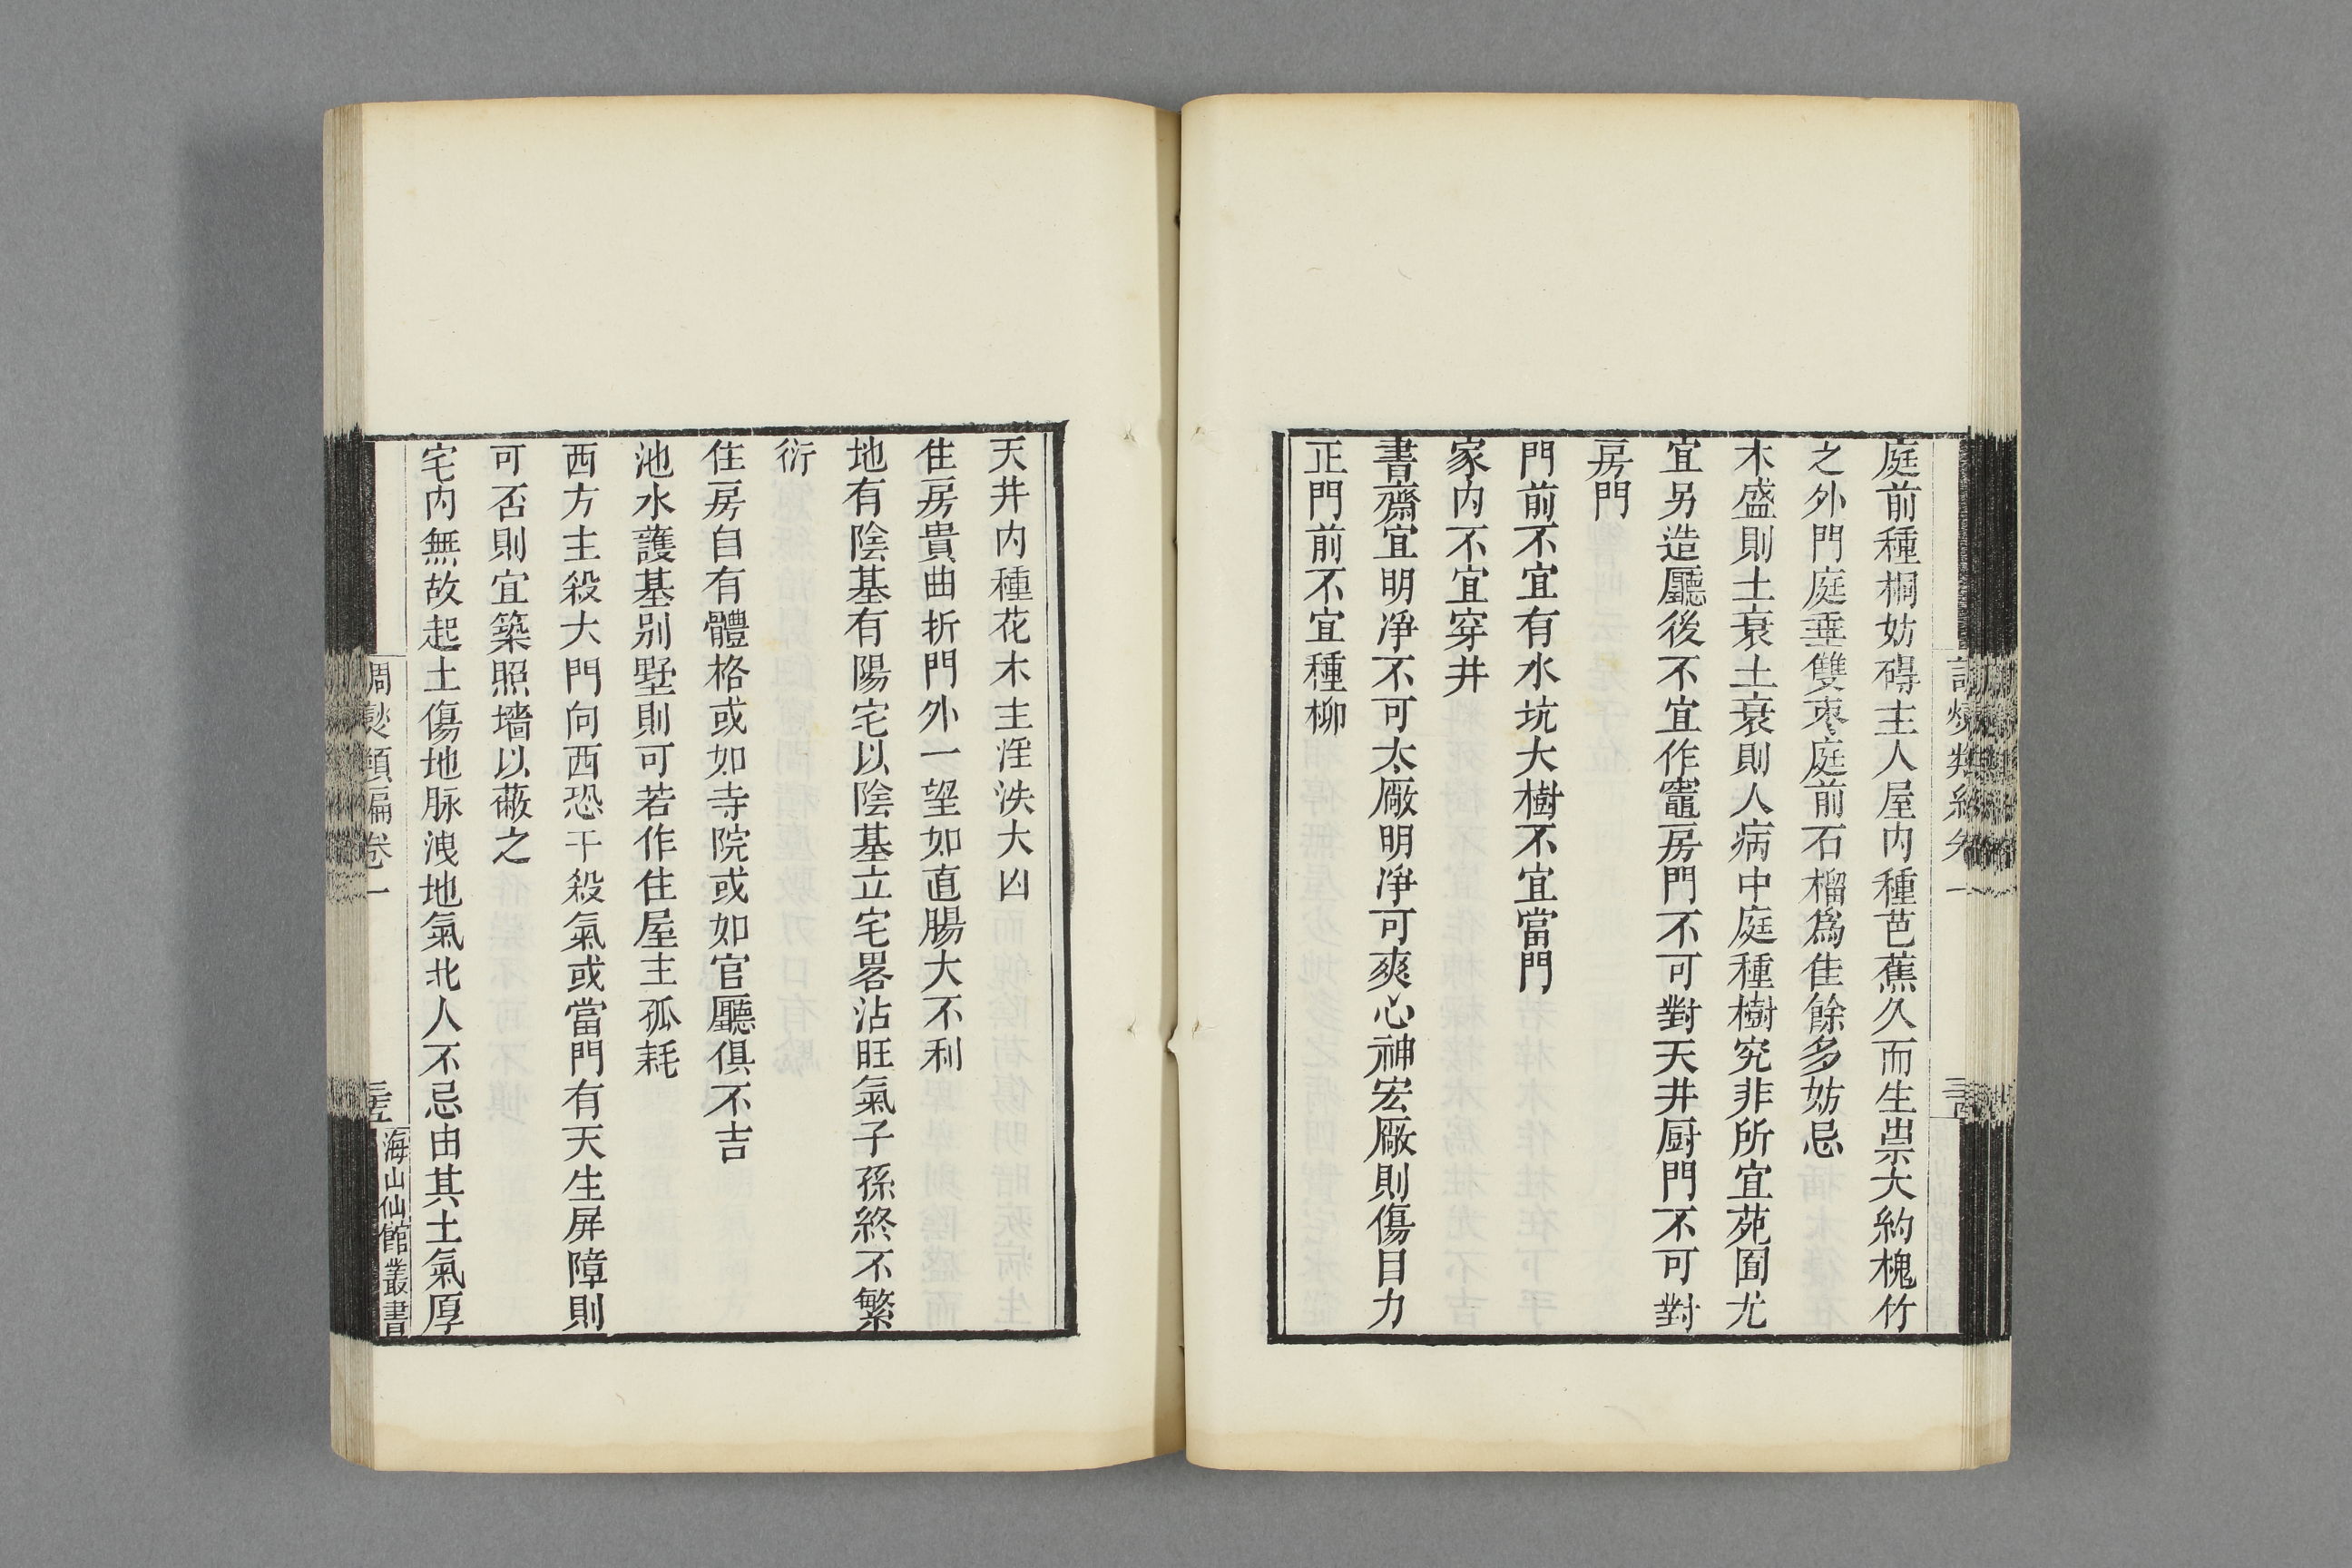 庭前種桐妨碍主人屋内種芭蕉久而生祟大約槐竹
之外門庭垂雙棗庭前石榴爲佳餘多妨忌
木盛則土衰土衰則人病中庭種樹究非所宜苑囿尤
宜另造廳後不宜作竈房門不可對天井厨門不可對
房門
門前不宜有水坑大樹不宜當門
家内不宜穿井
書齋宜明淨不可太厰明淨可爽心神宏厰則傷目力
正門前不宜種柳
天井内種花木主淫泆大凶
住房貴曲折門外一望如直腸大不利
地有陰基有陽宅以陰基立宅畧沾旺氣子孫終不繁
衍
住房自有體格或如寺院或如官廳俱不吉
池水護基别墅則可若作住屋主孤耗
西方主殺大門向西恐干殺氣或當門有天生屏障則
可否則宜築照墻以蔽之
宅内無故起土傷地脉洩地氣北人不忌由其土氣厚
調燮類編卷一
海山仙館叢書